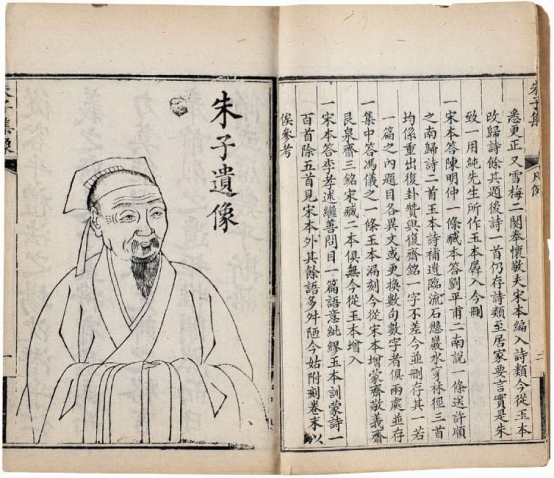 朱子集
凡例
二
悉更正又雪梅二闋奉懷敬夫宋本編入詩類今從玉本
改歸詩餘其題後詩一首仍存詩類至居家要言實是朱
致一用純先生所作玉本羼入今刪
一宋本答陳明仲一條臧本答劉平甫二南說一條送許順
之南歸詩二首玉本詩補遺臨流石懸巖水穿林徑三首
均係重出復卦贊與復齋銘一字不差今並刪存其一若
一篇之內題目各異文或更換數句數字者俱兩處並存
一集中答馮儀之一條玉本漏刻今從宋本增蒙齋敬義齋
艮泉齋三銘宋臧二本俱無今從玉本增入
一宋本答李孝述繼善問目一篇語意紕繆玉本訓蒙詩一
百首除五首見宋本外其餘語多舛陋今姑附刻卷末以
俟參考
朱子遺像
一